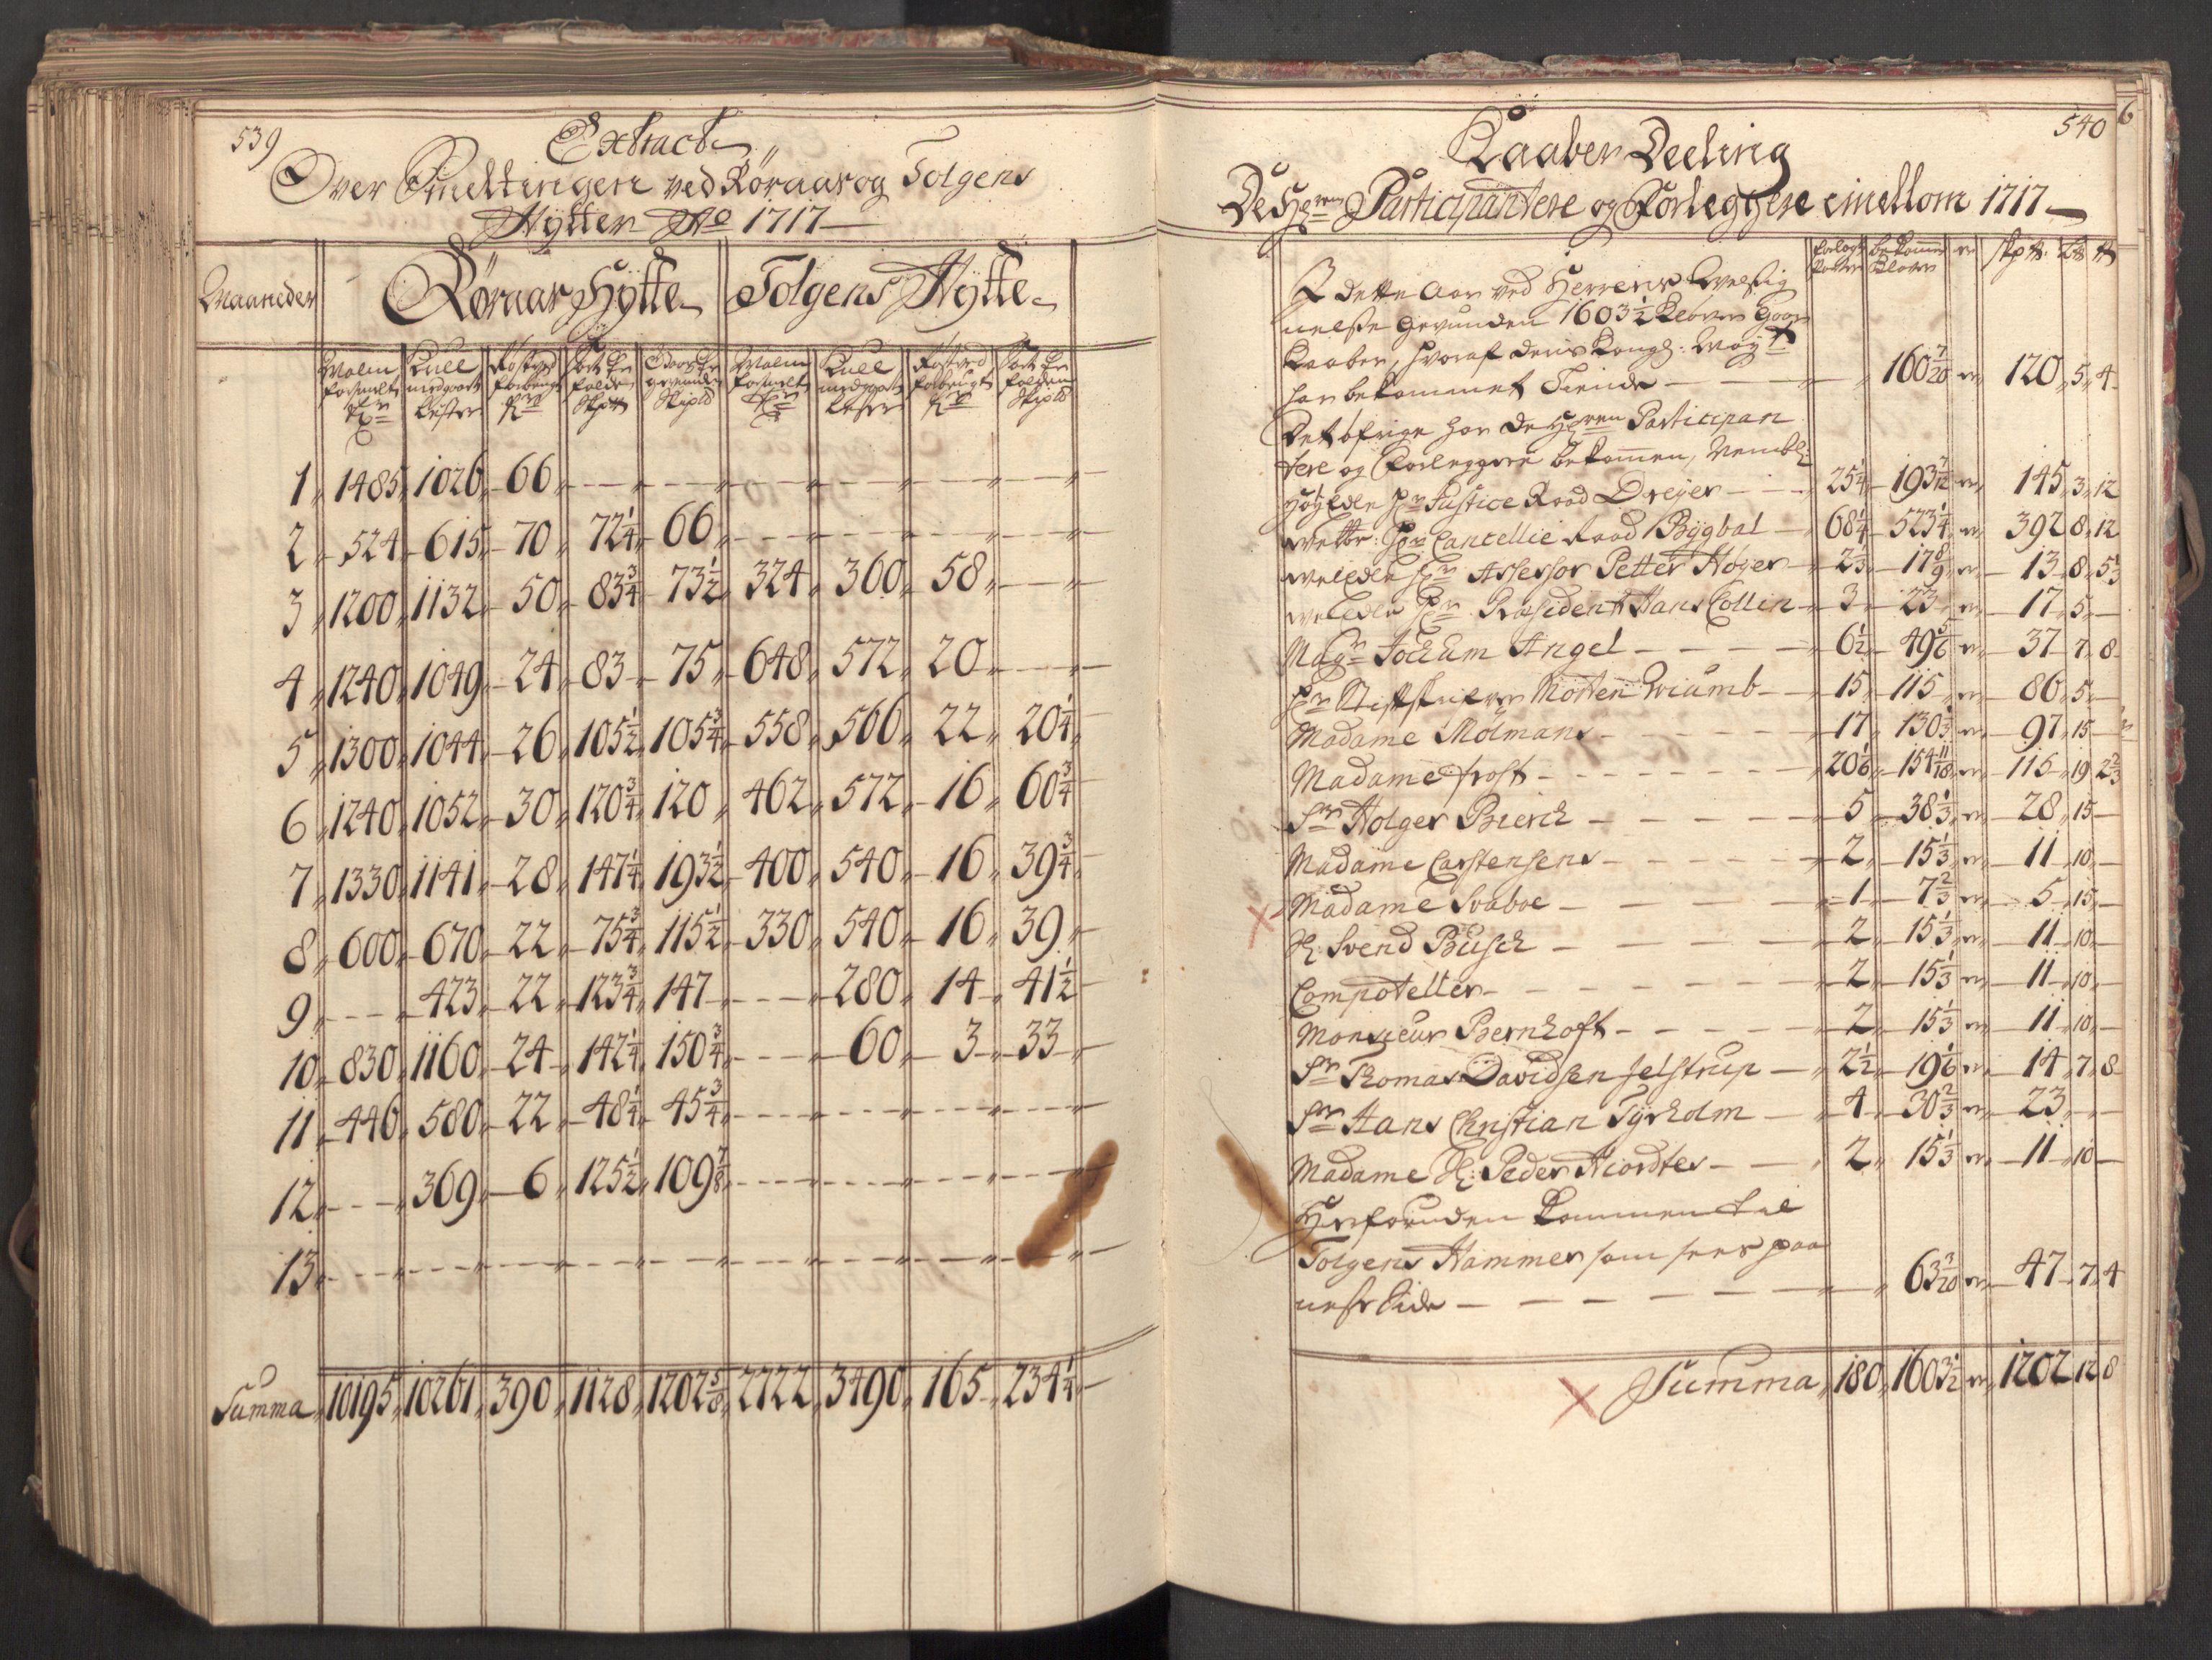 539
Extract
Over Smeltningen ved Röraas og Tolgens
Hÿtter Ao 1717
Maaneder Röraas Hÿtte Tolgens Hÿtte
Malm Kull Sort Malm Kull Sort
1 1485 1026 66
2 524 615 70 72¼ 66
3 1200 1132 50 83¾ 73½ 324 360 58
4 1240 1049 24 83 75 648 572 20
5 1300 1044 26 105½ 105¾ 558 566 22 20¼
6 1240 1052 30 120¾ 120 462 572 16 60¾
7 1330 1141 28 147¼ 193½ 400 540 16 39¾
8 600 670 22 75¾ 115½ 330 540 16 39
9 423 22 123¾ 147 280 14 41½
10 830 1160 24 142¼ 150¾ 60 3 33
11 446 580 22 48¼ 45¾
12 369 6 125½ 109⅞
13
Summa 10195 10261 390 1128 1202⅝ 2722 3490 165 234¼
540
6
Kaaber Deeling
De Hrren Participantere og Forleggere imellom 1717
I dette Aar ved Herrens Velsig
nelse Gevunden 1603½ Kløver Goor
Kaaber, hvoraf deris Kongl: Mayt
har bekommet Tiende 160 7/20 120 5 4
Det öfrige har de Hrren Participan
tere og Forleggere bekommen, Nembl:
Höÿedle Hr Justice Raad Dreÿer 25¼ 193 7/12 145 3 12
Hr Cancellie Raad Bÿgbal 68¼ 523¼ 392 8 12
Weledle Hr Assessor Petter Höyer 2⅓ 17 8/9 13 8 5⅓
Weledle Hr Præsident Hans Collin 3 23 17 5
Magr Jochum Angel 6½ 49⅚ 37 7 8
Hr Stiftskrifver Morten 15 115 86 5
Madame Mölmans 17 130⅓ 97 15
Madame Frost 20⅙ 154 11/18 115 19 2⅔
Sr Holger Bierch 5 38⅓ 28 15
Madame Carstensens 2 15⅓ 11 10
Madame Svaboe 1 7⅔ 5 15
H: Svend Busch 2 15⅓ 11 10
Compoteller 2 15⅓ 11 10
Monsieur Bernhoft 2 15⅓ 11 10
Sr Thomas Davidsen Jelstrup 2½ 19⅙ 14 7 8
Sr Hans Christian Tÿrholm 4 30⅔ 23
Madame H: Peder Hiordtes 2 15⅓ 11 10
Herforuden kommen til
Tolgens Hammer som sees paa
neste Side 63 3/20 47 7 4
Summa 180 1603½ 1202 12 8